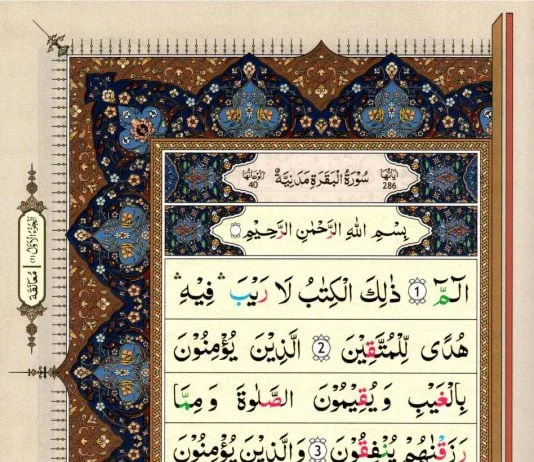 اٰيَاتُهَا 286 سُوْرَةُ الْبَقَرَةِ مَدَنِيَّةٌ رُكُوْعَاتُهَا 40
بِسْمِ اللّٰهِ الرَّحْمٰنِ الرَّحِيْمِ
الٓمّٓ ۝1 ذٰلِكَ الْكِتٰبُ لَا رَيْبَ ۛ فِيْهِ ۛ
هُدًى لِّلْمُتَّقِيْنَ ۝2 الَّذِيْنَ يُؤْمِنُوْنَ
بِالْغَيْبِ وَيُقِيْمُوْنَ الصَّلٰوةَ وَمِمَّا
رَزَقْنٰهُمْ يُنْفِقُوْنَ ۝3 وَالَّذِيْنَ يُؤْمِنُوْنَ
مُعَانَقَة (1) اَلْجُزْءُ الْاَوَّلُ